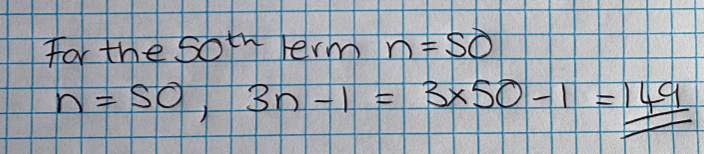 For the 50th term n = 50
n = 50, 3n - 1 = 3x50 - 1 = 149